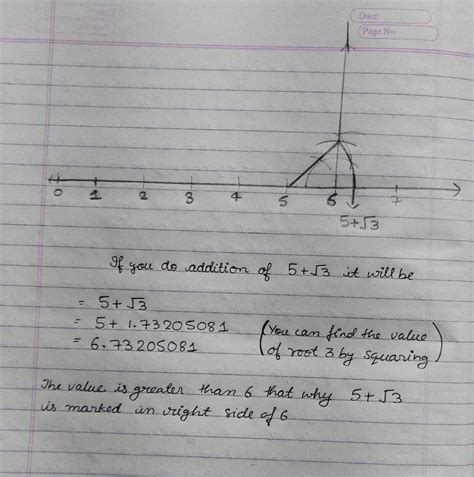 Date:
Page No.
0 1 2 3 4 5 6 7
5+√3
If you do addition of 5+√3 it will be
= 5+√3
= 5+ 1.73205081
= 6.73205081
(You can find the value
of root 3 by squaring)
The value is greater than 6 that why 5+√3
is marked in right side of 6